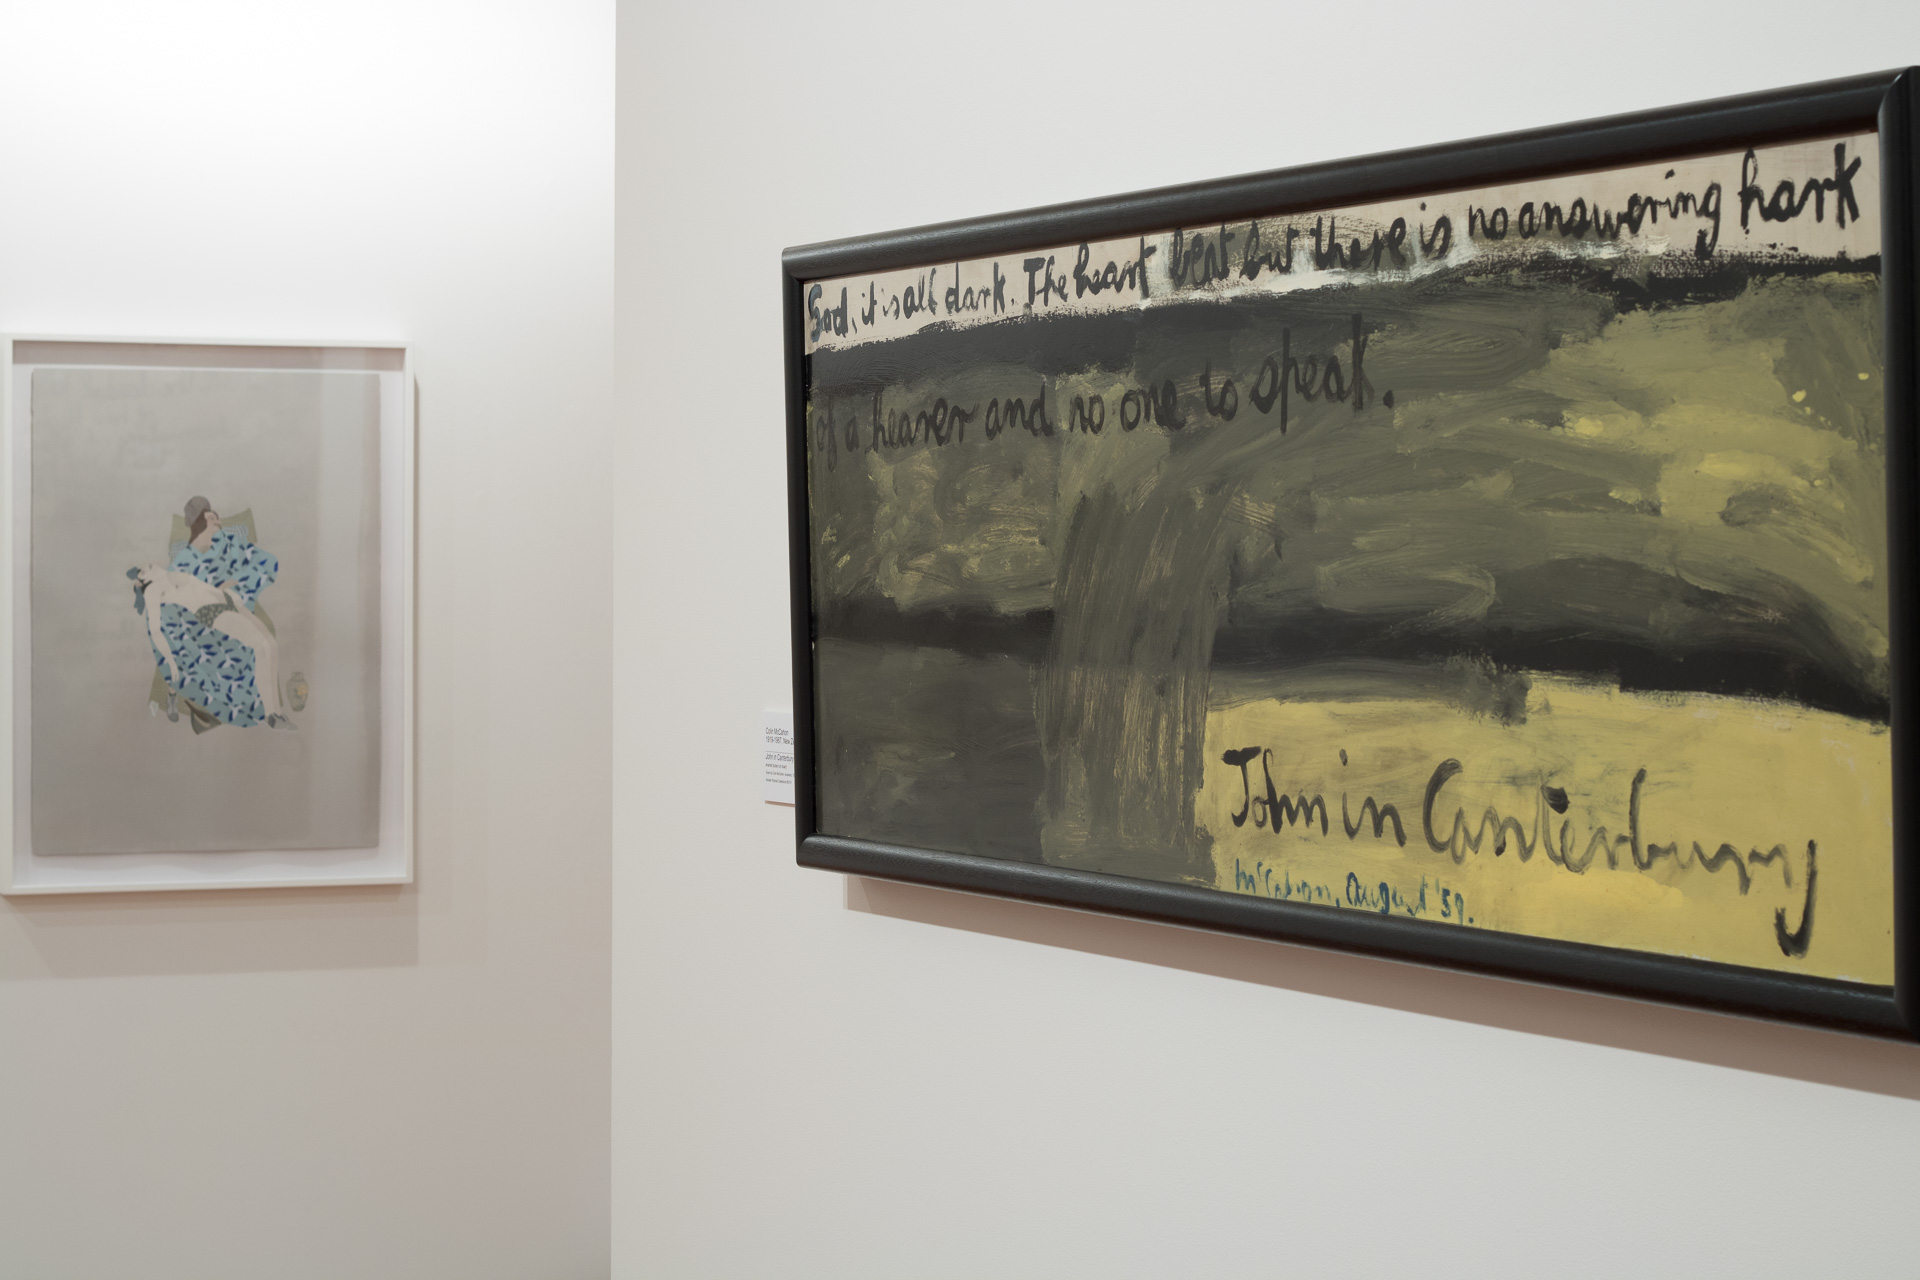 God, it is all dark. The heart beat but there is no answering hark
of a hearer and no one to speak.
John in Canterbury
McCahon, August '59.
Colin McCahon
John in Canterbury